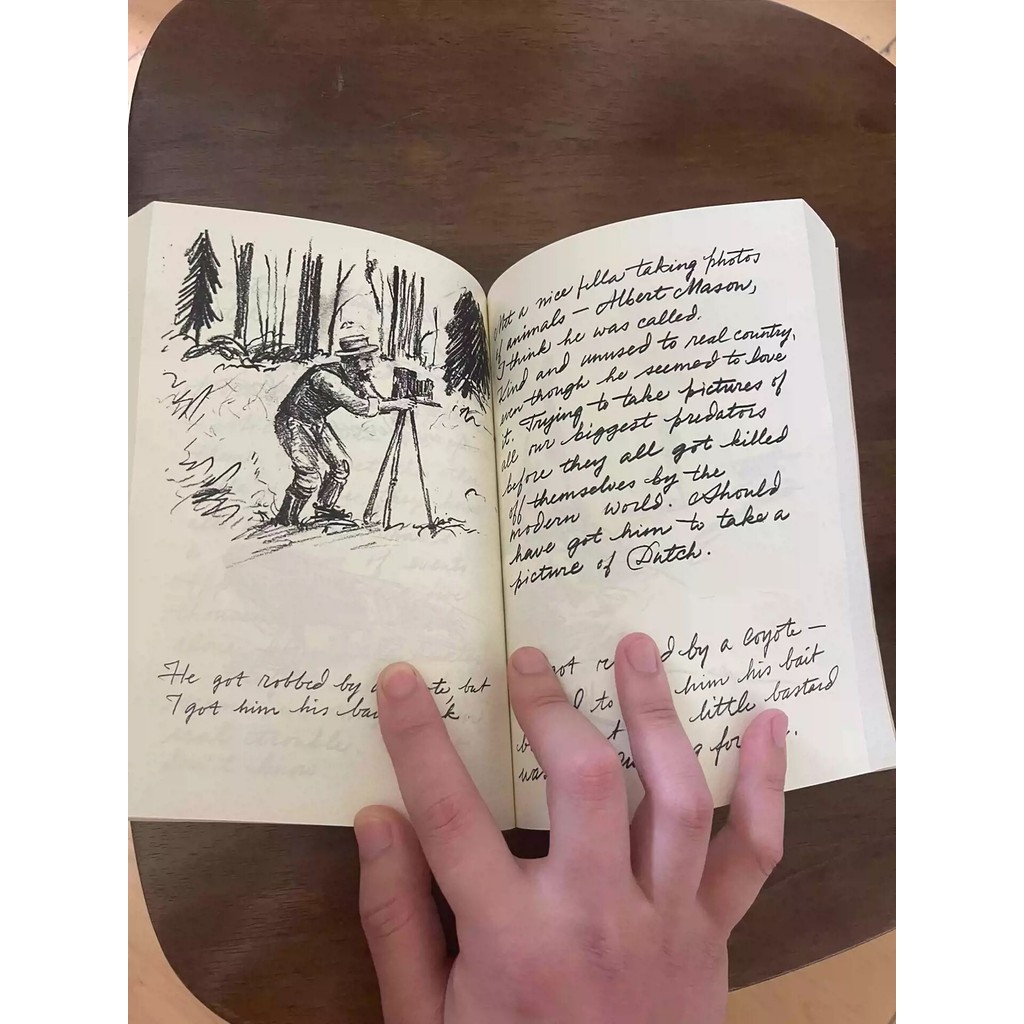 He got robbed by a te but
I got him his ba k.
Met a nice fella taking photos
of animals — Albert Mason,
I think he was called.
Kind and unused to real country,
even though he seemed to love
it. Trying to take pictures of
all our biggest predators
before they all got killed
off themselves by the
modern world. Should
have got him to take a
picture of Dutch.
got by a coyote —
to him his bait
little bastard